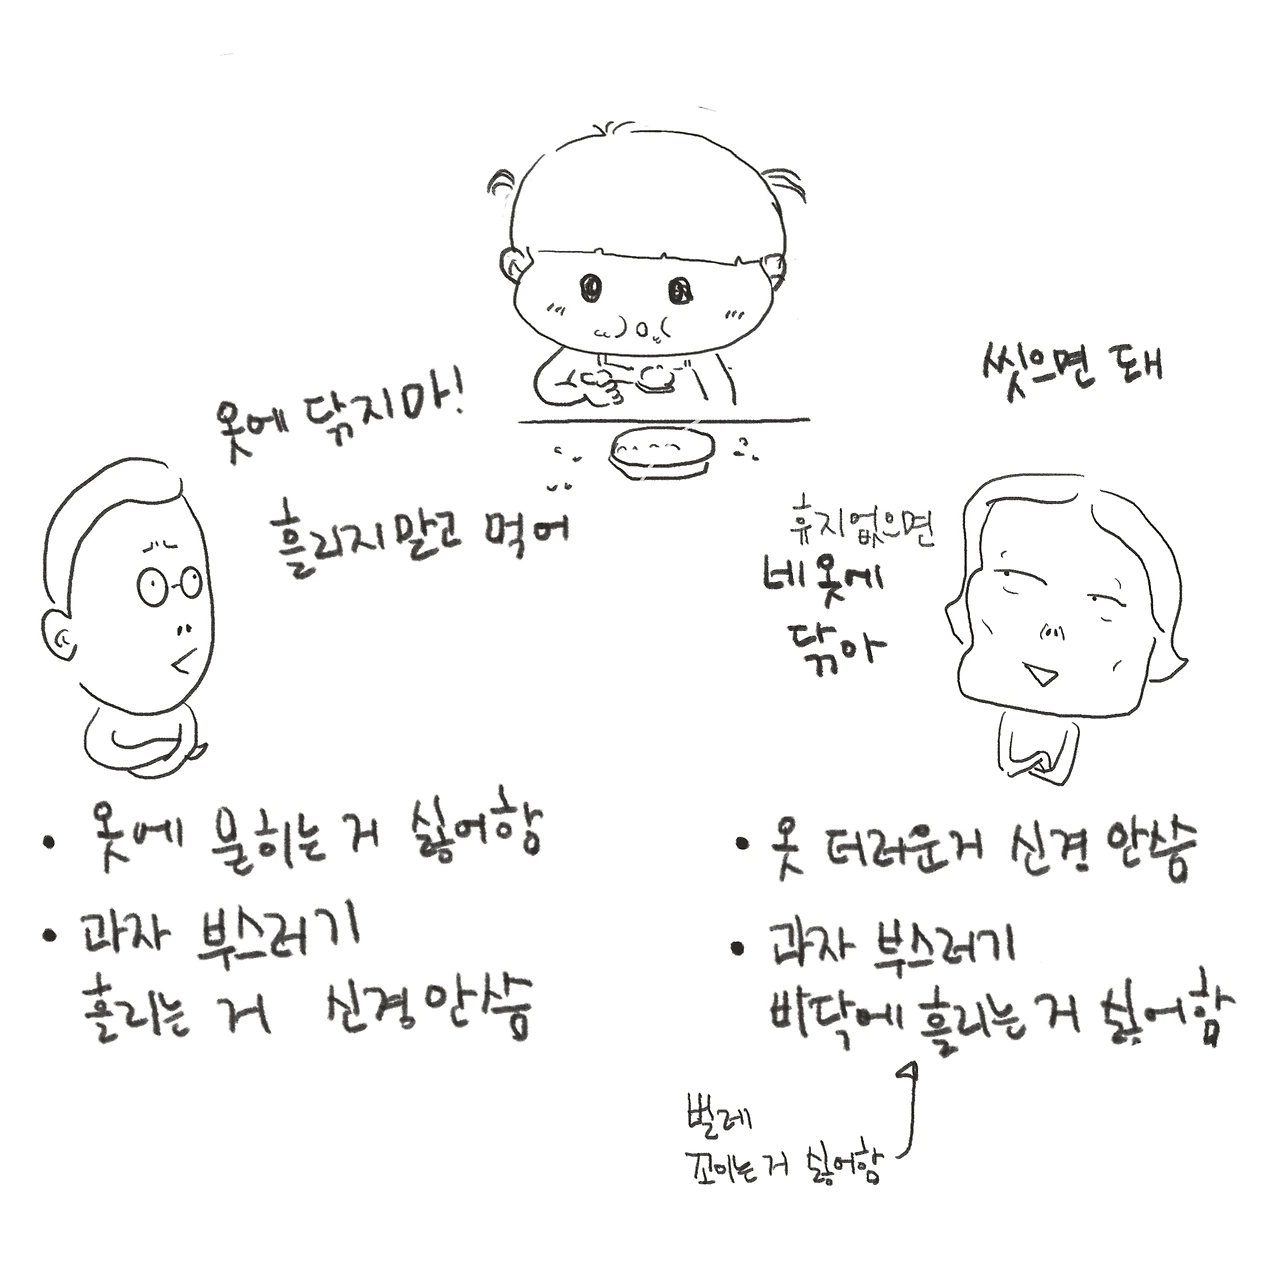 옷에 닦지마!
흘리지말고 먹어
씻으면 돼
휴지없으면
네 옷에
닦아
• 옷에 묻히는 거 싫어함
• 과자 부스러기
흘리는 거 신경안씀
• 옷 더러운거 신경 안씀
• 과자 부스러기
바닥에 흘리는 거 싫어함
벌레
꼬이는 거 싫어함